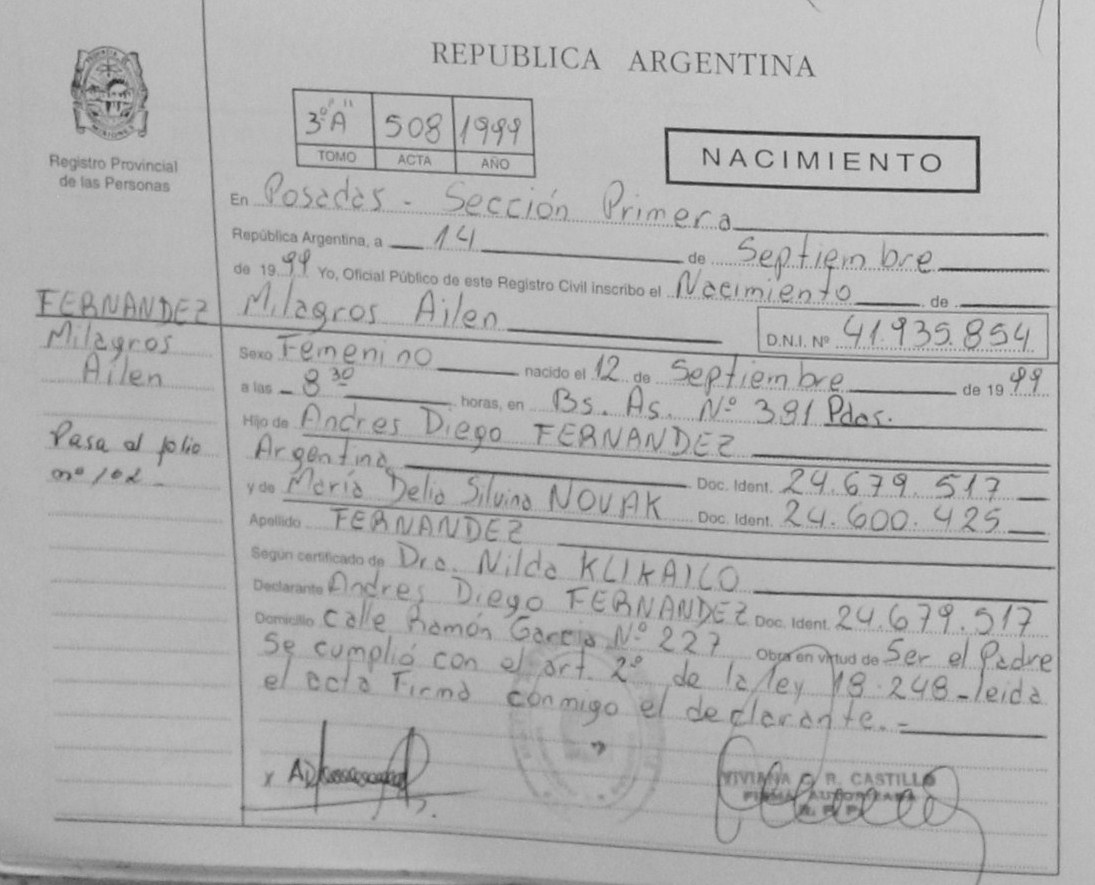 REPUBLICA ARGENTINA
Registro Provincial
de las Personas
3º "A" 508 1999
TOMO ACTA AÑO
NACIMIENTO
En Posadas - Sección Primera
República Argentina, a 14 de Septiembre
de 1999 Yo, Oficial Público de este Registro Civil inscribo el Nacimiento de
Milagros Ailen
D.N.I. Nº 41.935.854
FERNANDEZ
Milagros
Ailen
Pasa al folio
nº 102
Sexo Femenino nacido el 12 de Septiembre de 1999
a las 8 30 horas, en Bs. As. Nº 391 Pdas.
Hijo de Andres Diego FERNANDEZ
Argentina Doc. Ident. 24.679.517
y de María Delia Silvina NOVAK Doc. Ident. 24.600.425
Apellido FERNANDEZ
Según certificado de Dra. Nilda KLIKAILO
Declarante Andres Diego FERNANDEZ Doc. Ident. 24.679.517
Domicilio Calle Ramón Garcia Nº 227 Obra en virtud de Ser el Padre
Se cumplió con el art. 2º de la ley 18.248 - leida
el acta Firma conmigo el declarante.=
VIVIANA R. CASTILLO
FIRMA AUTORIZADA